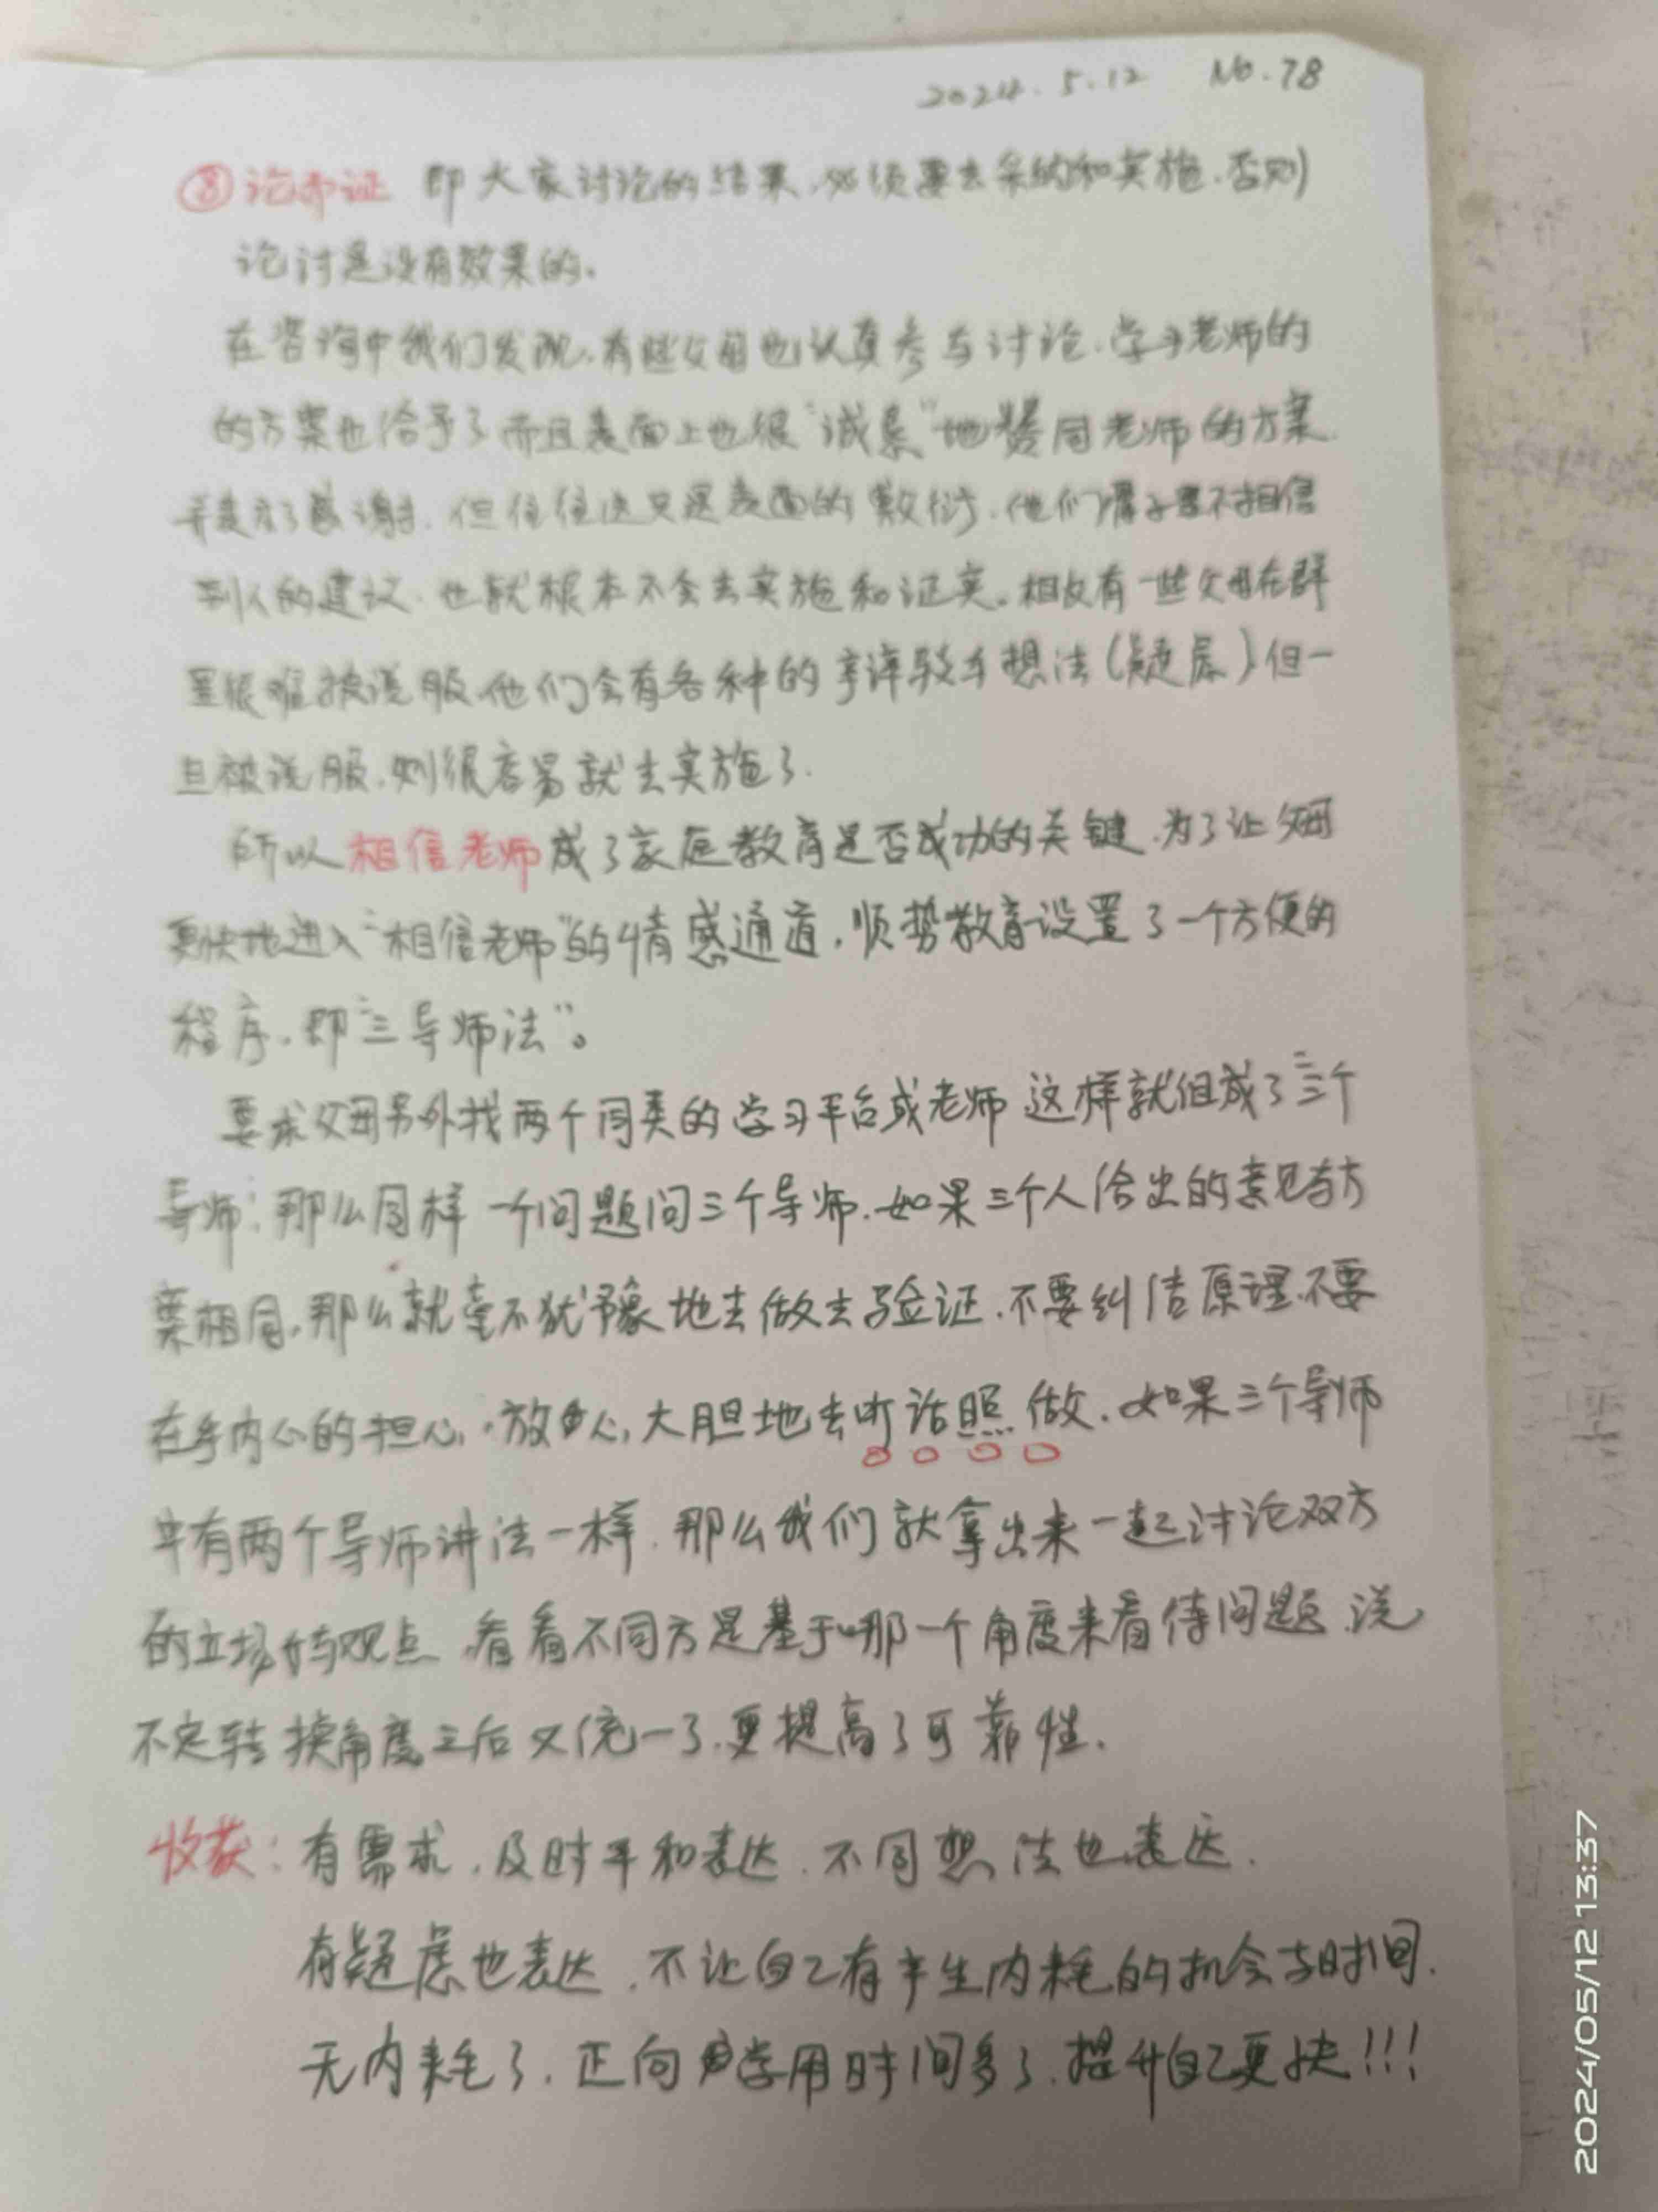 2024.5.12 No.78
③论而证 即大家讨论的结果,必须要去采的和实施.否则
论讨是没有效果的.
在咨询中我们发现,有些父母也认真参与讨论.学于老师的
的方案也给予了而且表面上也很“诚恳”地赞同老师的方案
并表示了感谢.但往往这只是表面的敷衍.他们骨子里不相信
别人的建议.也就根本不会去实施和证实。相反有一些父母在群
里很难被说服.他们会有各种的想法(疑虑)但一
旦被说服,则很容易就去实施了.
所以相信老师成了家庭教育是否成功的关键.为了让父母
更快地进入“相信老师”的情感通道,顺势教育设置了一个方便的
程序.即“三导师法”。
要求父母另外找两个同类的学习平台或老师 这样就组成了三个
导师:那么同样一个问题问三个导师.如果三个人给出的意见与方
案相同,那么就毫不犹予豫地去做去验证.不要纠结原理.不要
在乎内心的担心,放心,大胆地去听话照做.如果三个导师
中有两个导师讲法一样.那么我们就拿出来一起讨论双方
的立场与观点.看看不同方是基于哪一个角度来看待问题.说
不定转换角度之后又统一了.更提高了可靠性.
收获:有需求.及时平和表达.不同想法也表达.
有疑虑也表达.不让自己有产生内耗的机会与时间.
无内耗了.正向学用时间多了.提升自己更快!!!
2024/05/12 13:37